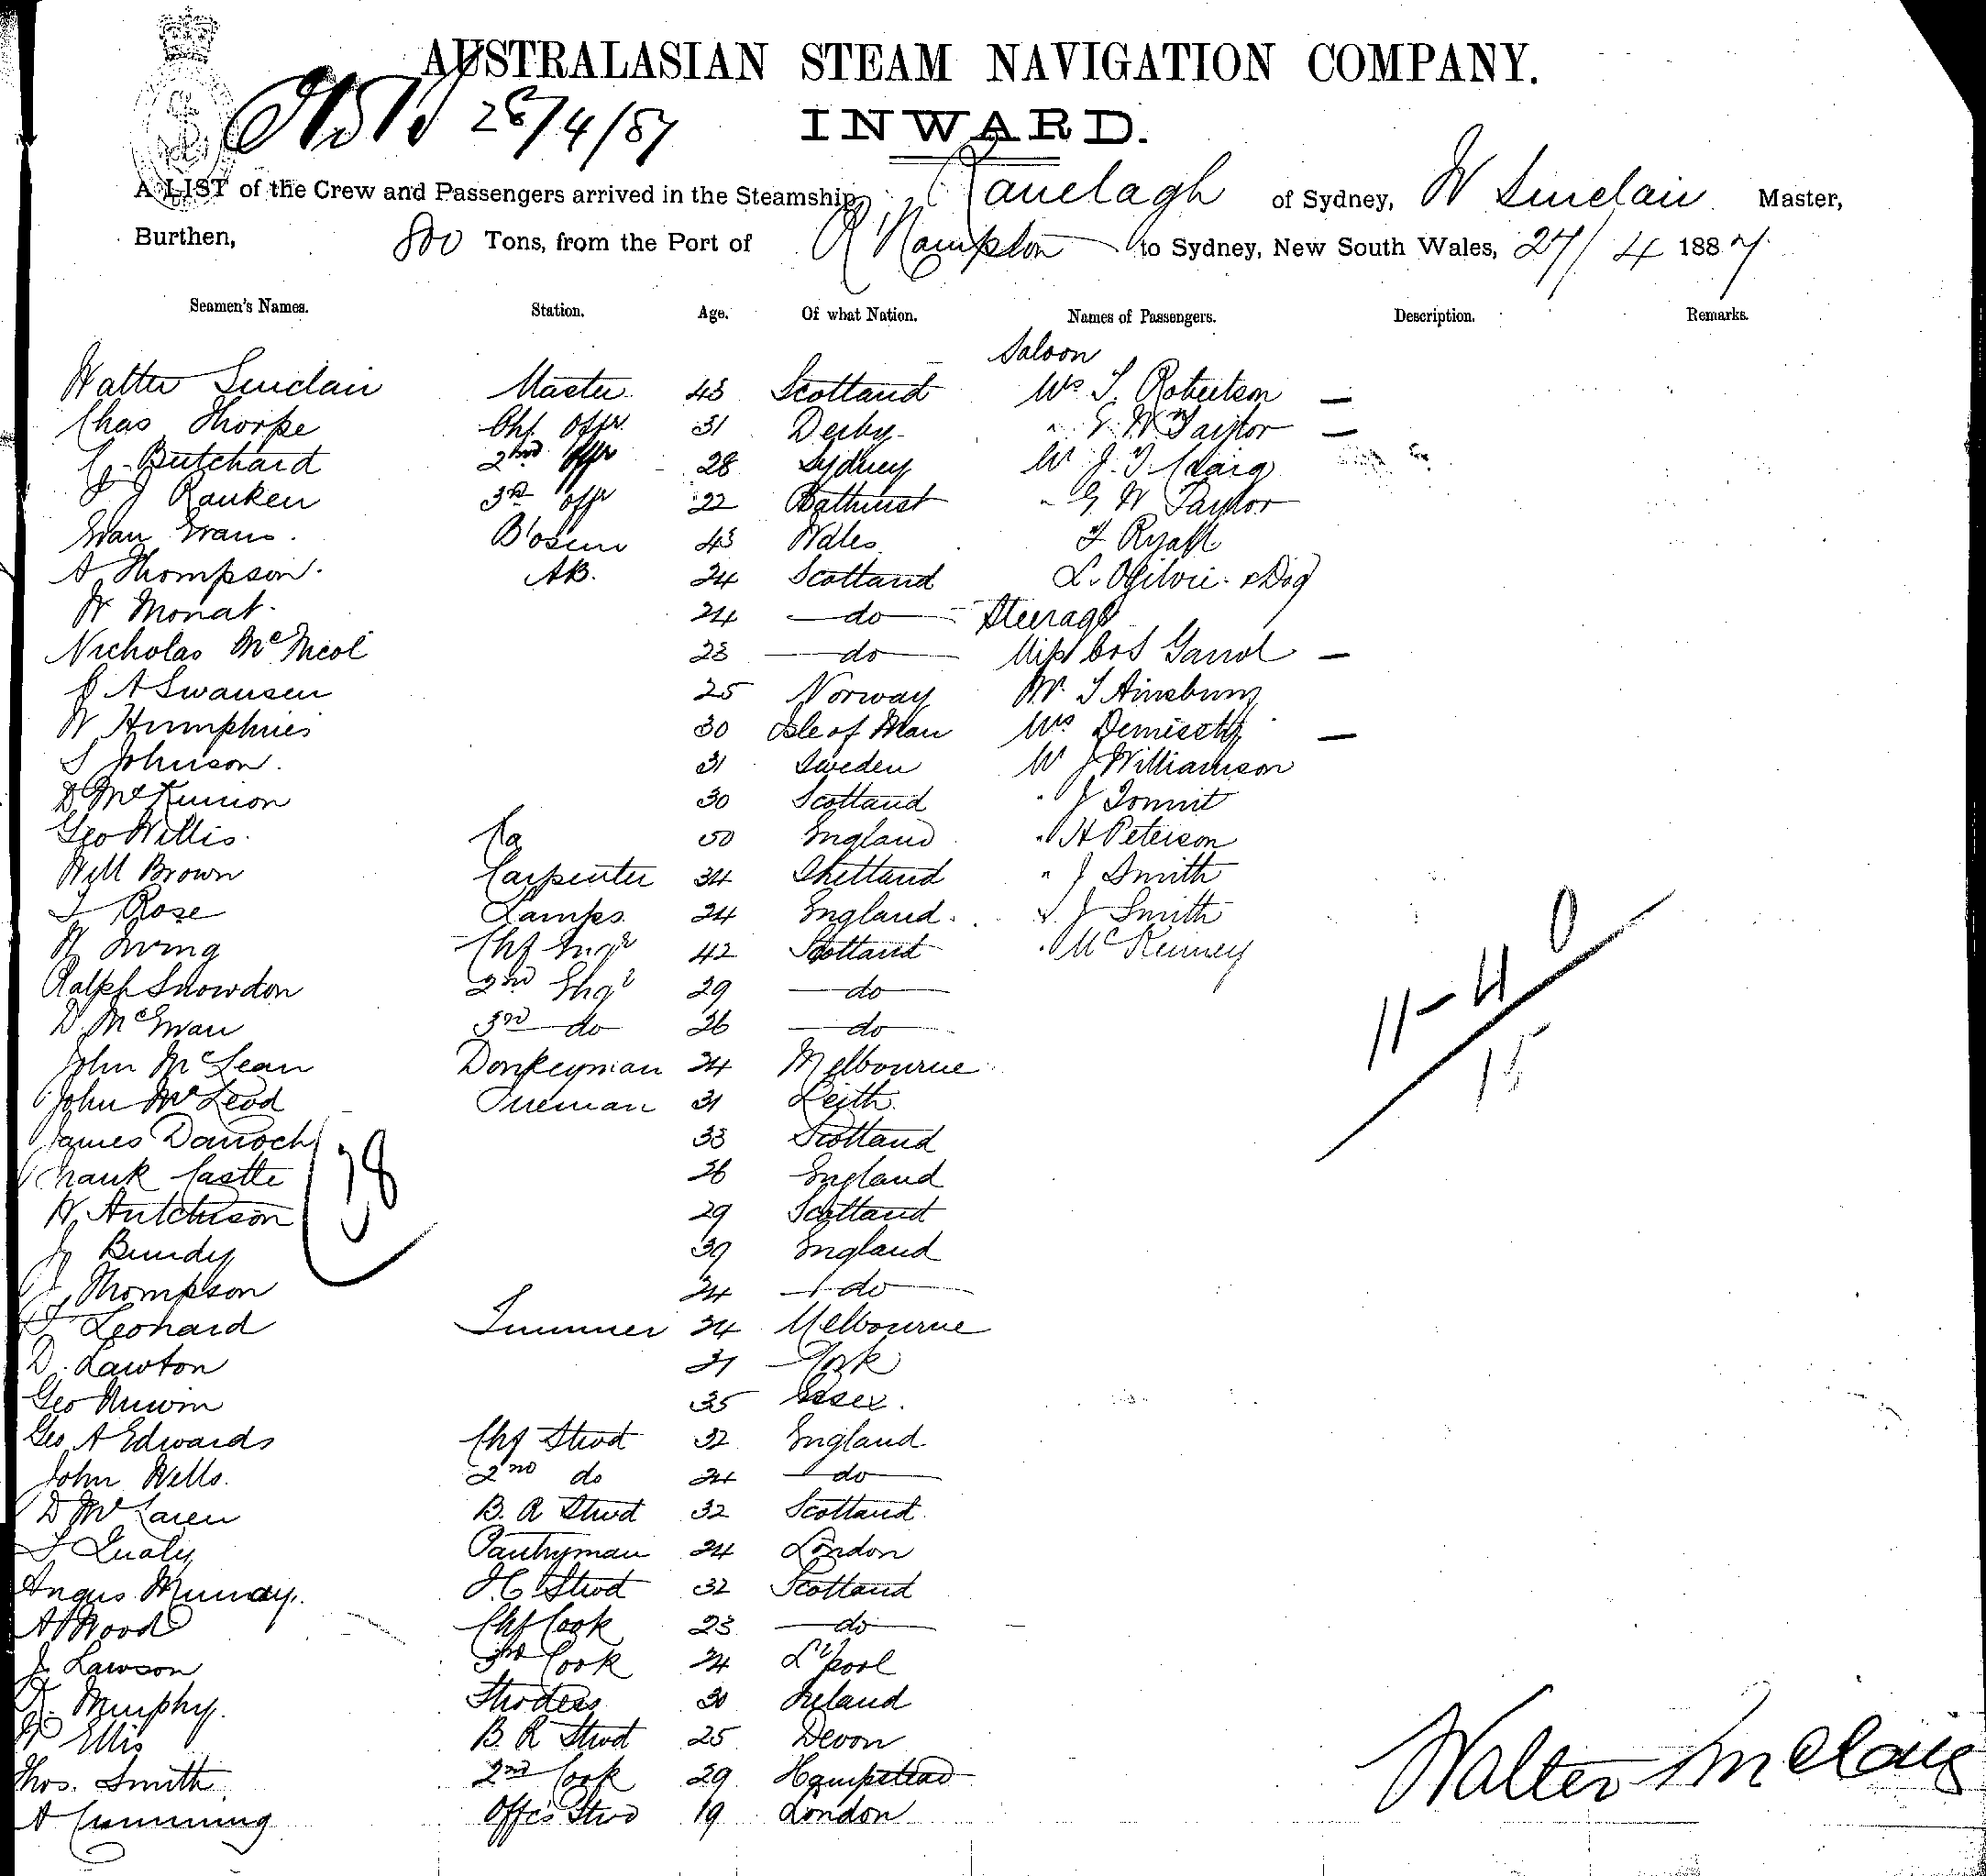 AUSTRALASIAN STEAM NAVIGATION COMPANY.
28/4/87 INWARD.
A LIST of the Crew and Passengers arrived in the Steamship, Ranelagh of Sydney, W Sinclair Master,
Burthen, 800 Tons, from the Port of R'Hampton to Sydney, New South Wales, 27/4 1887.
Seamen's Names. Station. Age. Of what Nation. Names of Passengers. Description. Remarks.
Saloon
Walter Sinclair Master 43 Scotland Mrs T. Robertson —
Chas Thorpe Chf Offr 31 Derby " G. W. Taylor —
C. Butchard 2nd Offr 28 Sydney Mr J. T. Craig
J Ranken 3rd offr 22 Bathurst " G W Taylor
Evan Evans. B'osun 43 Wales F Ryall
A Thompson. AB. 24 Scotland L. Ogilvie. & Dog
W Monat. 24 — do — Steerage
Nicholas McNicol 23 — do — Miss Gannol —
J A Swansen 25 Norway Mr. T Ainsbury
W Humphries 30 Isle of Man Mrs —
S Johnson. 31 Sweden Mr J Williamson
D. McKinnon 30 Scotland " J
Geo Willis. 50 England " H Peterson
Will Brown Carpenter 34 Shetland " J Smith
T Rose Lamps. 24 England. " J Smith
W Irving Chf Engr 42 Scotland " McKenney
Ralph Snowdon 2nd Engr 29 — do —
D. McEwan 3rd do 26 — do —
11-4 0
John McLean Donkeyman 24 Melbourne
15
John McLeod Fireman 31 Leith.
James Darroch 33 Scotland
38
Frank Castle 26 England
W. Hutchison 29 Scotland
J Bundy 39 England
J Thompson 24 — do —
T Leonard Trimmer 24 Melbourne
D. Lawton 21 York
Geo Unwin 35 Essex.
Geo A Edwards Chf Stwd 32 England
John Wells. 2nd do 24 — do —
D McLaren B. R Stwd 32 Scotland.
T Qualy Pantryman 24 London
Angus Murray. F.C Stwd 32 Scotland
A Wood Chf Cook 23 — do —
J. Lawson 3rd Cook 24 L'pool
Murphy. Stwdess 30 Ireland
W Ellis B. R Stwd 25 Devon
Thos. Smith 2nd Cook 29 Hampstead
A Cumming Offcs Stwd 19 London
Walter Sinclair